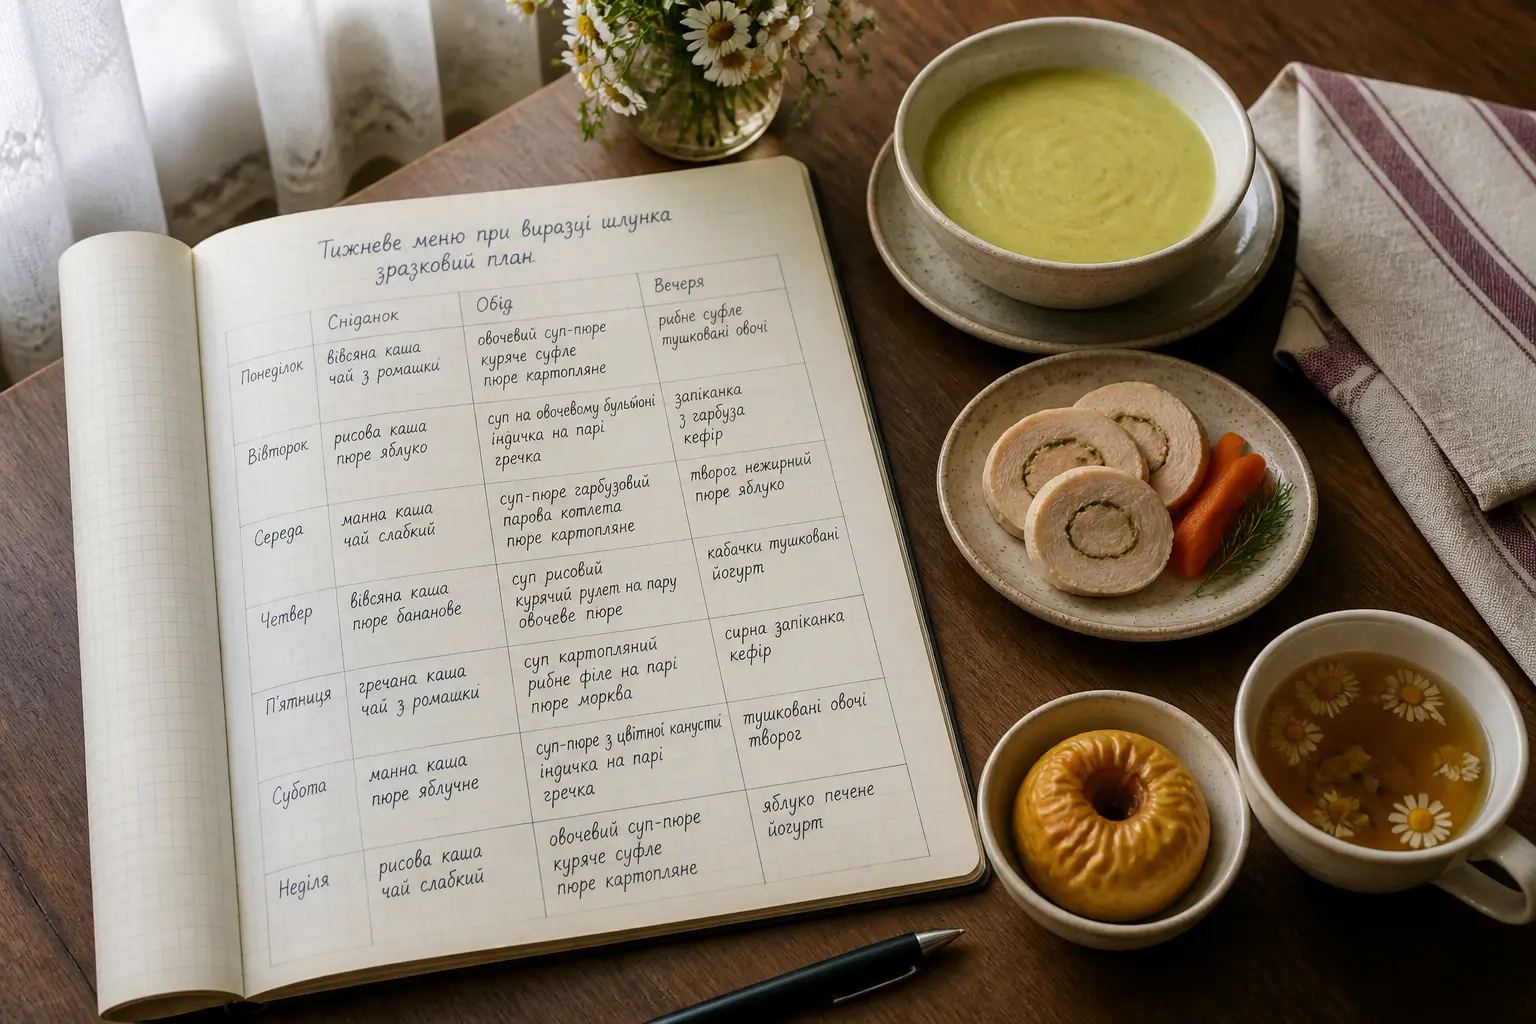 Тижневе меню при виразці шлунка
зразковий план.
Сніданок
Обід
Вечеря
Понеділок
вівсяна каша
чай з ромашки
овочевий суп-пюре
куряче суфле
пюре картопляне
рибне суфле
тушковані овочі
Вівторок
рисова каша
пюре яблуко
суп на овочевому бульйоні
індичка на парі
гречка
запіканка
з гарбуза
кефір
Середа
манна каша
чай слабкий
суп-пюре гарбузовий
парова котлета
пюре картопляне
творог нежирний
пюре яблуко
Четвер
вівсяна каша
пюре бананове
суп рисовий
курячий рулет на пару
овочеве пюре
кабачки тушковані
йогурт
П'ятниця
гречана каша
чай з ромашки
суп картопляний
рибне філе на парі
пюре морква
сирна запіканка
кефір
Субота
манна каша
пюре яблучне
суп-пюре з цвітної капусти
індичка на парі
гречка
тушковані овочі
творог
Неділя
рисова каша
чай слабкий
овочевий суп-пюре
куряче суфле
пюре картопляне
яблуко печене
йогурт